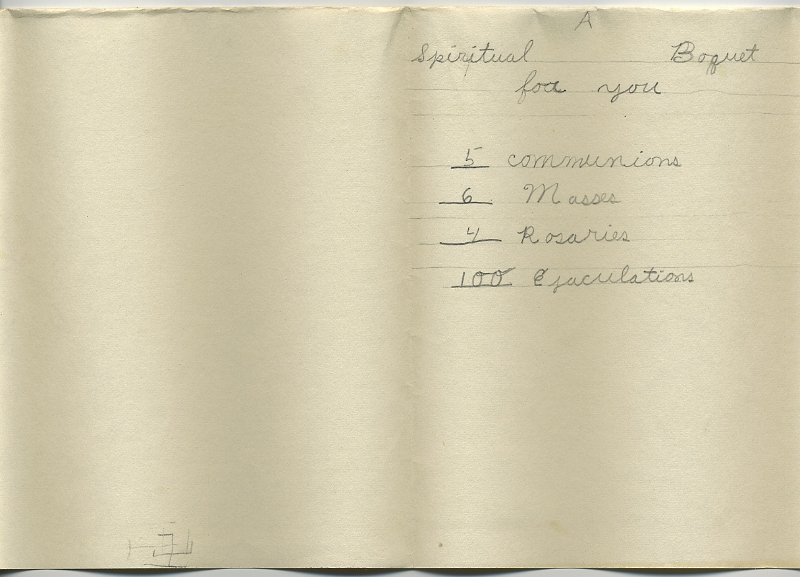 A
Spiritual Boquet
for you
5 communions
6 Masses
4 Rosaries
100 Ejaculations